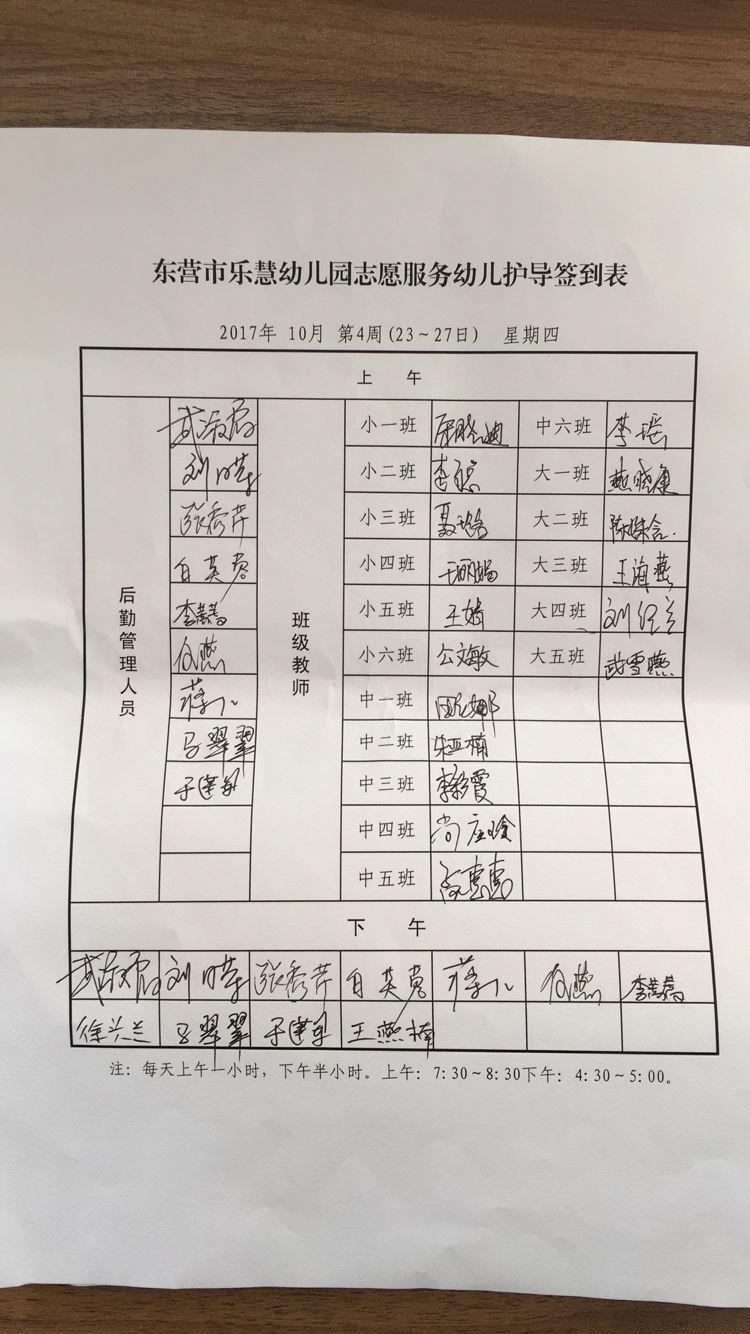 东营市乐慧幼儿园志愿服务幼儿护导签到表
2017年 10月 第4周(23～27日) 星期四
上 午
后勤管理人员
班级教师
刘
张秀芹
白英蓉
李菁菁
马翠翠
于建军
小一班
小二班 李聪
小三班 聂璐
小四班
小五班 王娟
小六班 公文敏
中一班 田娜
中二班 朱亚楠
中三班 李彩霞
中四班 尚
中五班 高惠惠
中六班 李瑶
大一班 燕晓康
大二班 陈
大三班 王海燕
大四班 刘红兰
大五班 武雪燕
下 午
刘 张秀芹 白英蓉 李菁菁
徐兴兰 马翠翠 于建军 王燕楠
注：每天上午一小时，下午半小时。上午：7:30～8:30下午：4:30～5:00。